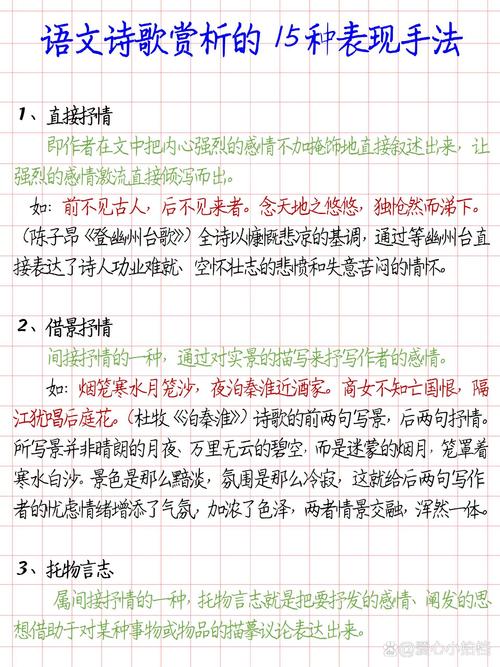 语文诗歌赏析的15种表现手法
1、直接抒情
即作者在文中把内心强烈的感情不加掩饰地直接叙述出来，让
强烈的感情激流直接倾泻而出。
如：前不见古人，后不见来者。念天地之悠悠，独怆然而涕下。
（陈子昂《登幽州台歌》）全诗以慷慨悲凉的基调，通过等幽州台直
接表达了诗人功业难就、空怀壮志的悲愤和失意苦闷的情怀。
2、借景抒情
间接抒情的一种，通过对实景的描写来抒写作者的感情。
如：烟笼寒水月笼沙，夜泊秦淮近酒家。商女不知亡国恨，隔
江犹唱后庭花。（杜牧《泊秦淮》）诗歌的前两句写景，后两句抒情。
所写景并非晴朗的月夜、万里无云的碧空，而是迷蒙的烟月，笼罩着
寒水白沙。景色是那么黯淡，氛围是那么冷寂，这就给后两句写作
者的忧虑情绪增添了气氛，加浓了色泽，两者情景交融，浑然一体。
3、托物言志
属间接抒情的一种，托物言志就是把要抒发的感情、阐发的思
想借助于对某种事物或物品的描摹议论表达出来。